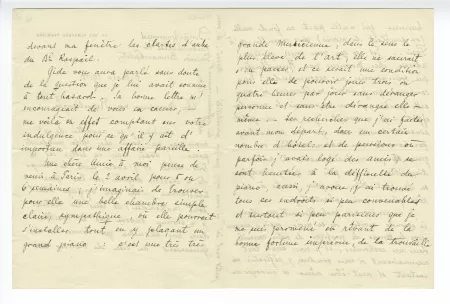 devant ma fenêtre les clartés d'aube
du Bd Raspail.
Gide vous aura parlé sans doute
de la question que je lui avais soumise
à tout hasard. Sa bonne lettre m'
encourageait de vous en
me voilà en effet comptant sur votre
indulgence pour ce qu'il y ait d'
importun dans une affaire pareille.
Une chère amie à moi pense de
venir à Paris le 2 avril, pour 5 ou
6 semaines; j'imaginais de trouver
pour elle une belle chambre simple
claire, sympathique, où elle pourrait
s'installer tout en y plaçant un
grand piano: c'est une très très
grande musicienne, dans le sens le
plus élevé de l'art, elle ne saurait
s'en passer, et ce serait une condition
pour elle de pouvoir jouer trois ou
quatre heures par jour sans déranger
personne et sans être dérangée elle-
même. — Les recherches que j'ai faites
avant mon départ, dans un certain
nombre d'hôtels et de pensions où
parfois j'avais logé des amis, se
sont heurtées à la difficulté du
piano; aussi, j'avoue, j'ai trouvé
tous ces endroits si peu convenables
et surtout si peu parisiens que je
me suis promené en rêvant de la
bonne fortune imprévue, de la trouvaille